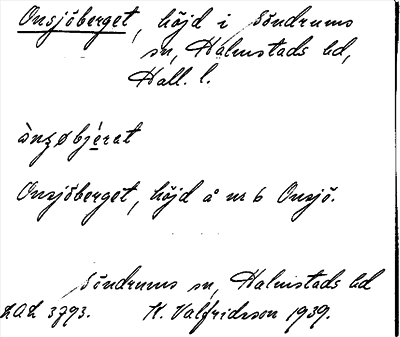 Onsjöberget, höjd i Söndrums
sn, Halmstads hd,
Hall. l.
ònʒøbjèrat
Onsjöberget, höjd å nr 6 Onsjö.
Söndrums sn, Halmstads hd
LAL 3793. H. Valfridsson 1939.